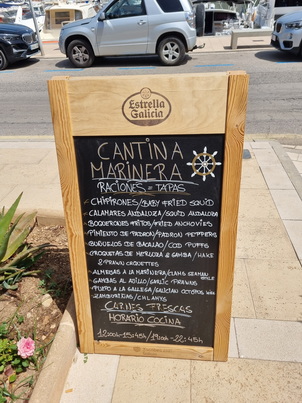 Estrella
Galicia
CANTINA
MARINERA
RACIONES = TAPAS
CHIPIRONES/BABY FRIED SQUID
CALAMARES ANDALUZA/SQUID ANDALUZA
BOQUERONES FRITOS/FRIED ANCHOVIES
PIMIENTO DE PADRON/PADRON PEPPERS
BUÑUELOS DE BACALAO/COD PUFFS
CROQUETAS DE MERLUZA & GAMBA/HAKE
& PRAWN CROQUETTES
ALMEJAS A LA MARINERA/CLAMS SEAMAN
STYLE
GAMBAS AL AJILLO/GARLIC PRAWNS
PULPO A LA GALLEGA/GALICIAN OCTOPUS
ZAMBURIÑAS/CHLAMYS
CARNES FRESCAS
HORARIO COCINA